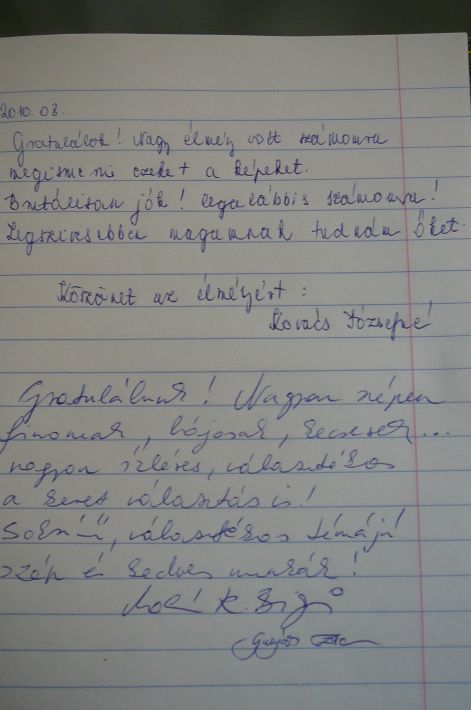 2010. 08.
Gratulálok! Nagy élmény volt számomra
megismerni ezeket a képeket.
Brutálisan jók! legalábbis számomra!
Legszivesebben magamnak tudnám őket.
Köszönet az élményért:
Kovács Józsefné
Gratulálunk! Nagyon szépen
finomak, bájosak, kecsesek...
nagyon ízléses, választékos
a keret választás is!
Sokszínű, választékos témájú
szép és kedves munkák!